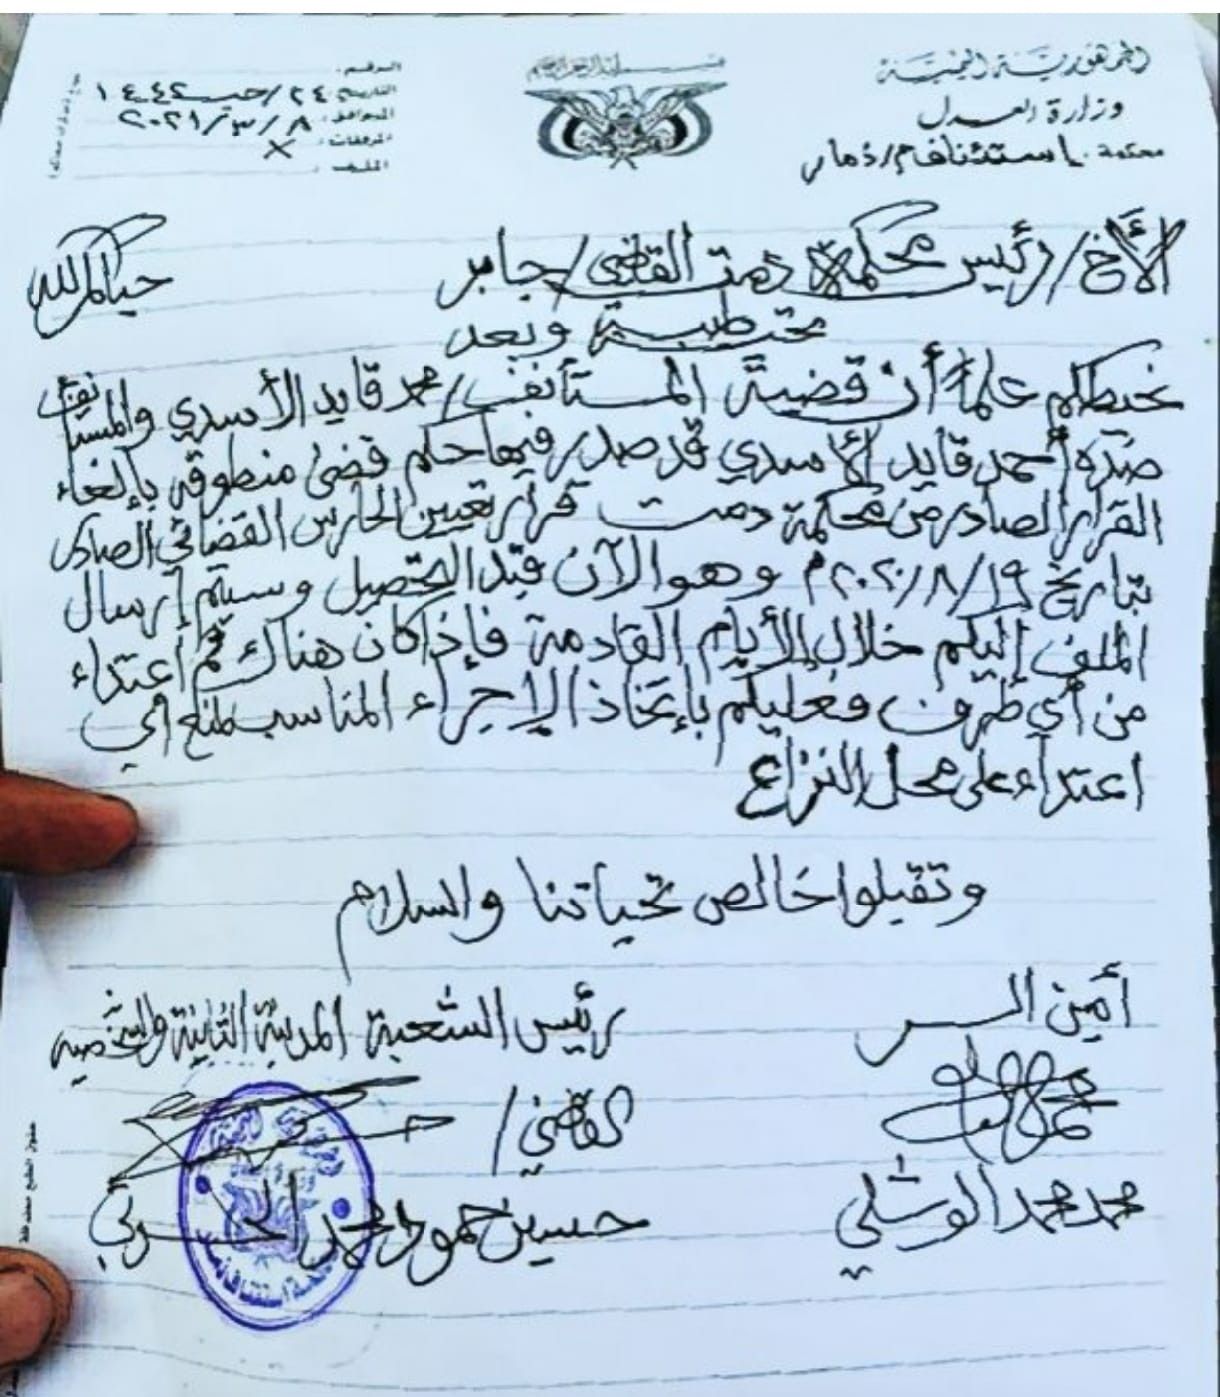 الجمهورية اليمنية
وزارة العدل
محكمة استئناف م/ذمار
بسم الله الرحمن الرحيم
الرقم:
التاريخ: ٢٤/رجب/١٤٤٢
الموافق: ٨/٣/٢٠٢١
المرفقات: X
الملف:
الأخ/رئيس محكمة دمت القاضي/جابر حياكم الله
تحية طيبة وبعد
نحيطكم علماً أن قضية المستأنف/محمد قايد الأسدي والمستأنف
ضده أحمد قايد الأسدي قد صدر فيها حكم قضى منطوقه بإلغاء
القرار الصادر من محكمة دمت قرار تعيين الحارس القضائي الصادر
بتاريخ ١٩/٨/٢٠٢٠م وهو الآن قيد التحصيل وسيتم إرسال
الملف إليكم خلال الأيام القادمة فإذا كان هناك ثم اعتداء
من أي طرف فعليكم بإتخاذ الإجراء المناسب لمنع أي
اعتداء على محل النزاع
وتقبلوا خالص تحياتنا والسلام
أمين السر
رئيس الشعبة المدنية الثانية والشخصية
القاضي/
محمد محمد الوشلي
حسين حمود محمد